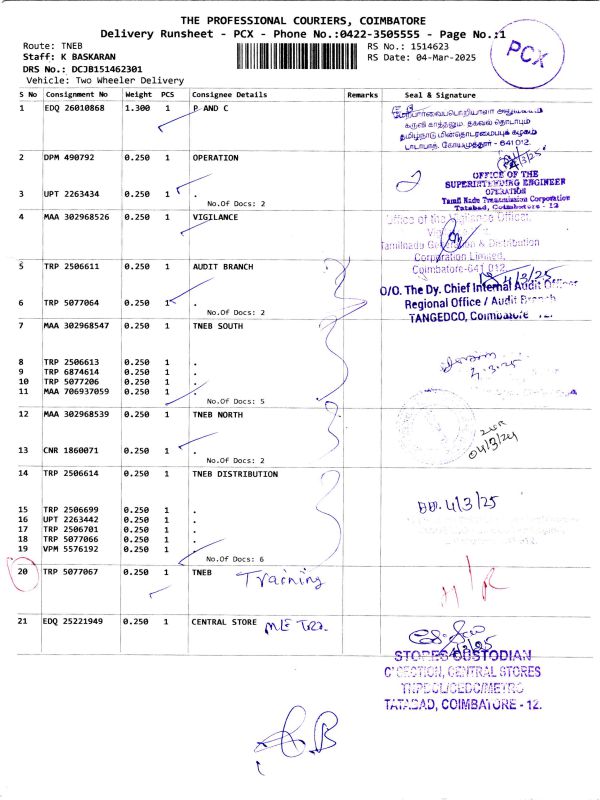 THE PROFESSIONAL COURIERS, COIMBATORE
Delivery Runsheet - PCX - Phone No.:0422-3505555 - Page No.:1
Route: TNEB
RS No.: 1514623
Staff: K BASKARAN
RS Date: 04-Mar-2025
DRS No.: DCJB151462301
Vehicle: Two Wheeler Delivery
PCX
S No Consignment No Weight PCS Consignee Details Remarks Seal & Signature
1 EDQ 26010868 1.300 1 P AND C
தமிழ்நாடு மின்தொடரமைப்புக் கழகம்
டாடாபாத், கோயமுத்தூர் - 641 012.
2 DPM 490792 0.250 1 OPERATION
4/3/25
OFFICE OF THE
SUPERINTENDING ENGINEER
OPERATION
Tamil Nadu Transmission Corporation
Tatabad, Coimbatore - 12
3 UPT 2263434 0.250 1 .
No.Of Docs: 2
4 MAA 302968526 0.250 1 VIGILANCE
Office of the Vigilance Officer,
Tamilnadu Generation & Distribution
Corporation Limited,
Coimbatore-641 012.
5 TRP 2506611 0.250 1 AUDIT BRANCH
4/3/25
O/O. The Dy. Chief Internal Audit Officer
Regional Office / Audit Branch
TANGEDCO, Coimbatore - 12.
6 TRP 5077064 0.250 1 .
No.Of Docs: 2
7 MAA 302968547 0.250 1 TNEB SOUTH
8 TRP 2506613 0.250 1 .
4.3.25
9 TRP 6874614 0.250 1 .
10 TRP 5077206 0.250 1 .
11 MAA 706937059 0.250 1 .
No.Of Docs: 5
12 MAA 302968539 0.250 1 TNEB NORTH
04/3/24
13 CNR 1860071 0.250 1 .
No.Of Docs: 2
14 TRP 2506614 0.250 1 TNEB DISTRIBUTION
4/3/25
15 TRP 2506699 0.250 1 .
16 UPT 2263442 0.250 1 .
17 TRP 2506701 0.250 1 .
18 TRP 5077066 0.250 1 .
19 VPM 5576192 0.250 1 .
No.Of Docs: 6
20 TRP 5077067 0.250 1 TNEB Training
21 EDQ 25221949 0.250 1 CENTRAL STORE
STORES CUSTODIAN
C' SECTION, CENTRAL STORES
TATABAD, COIMBATORE - 12.